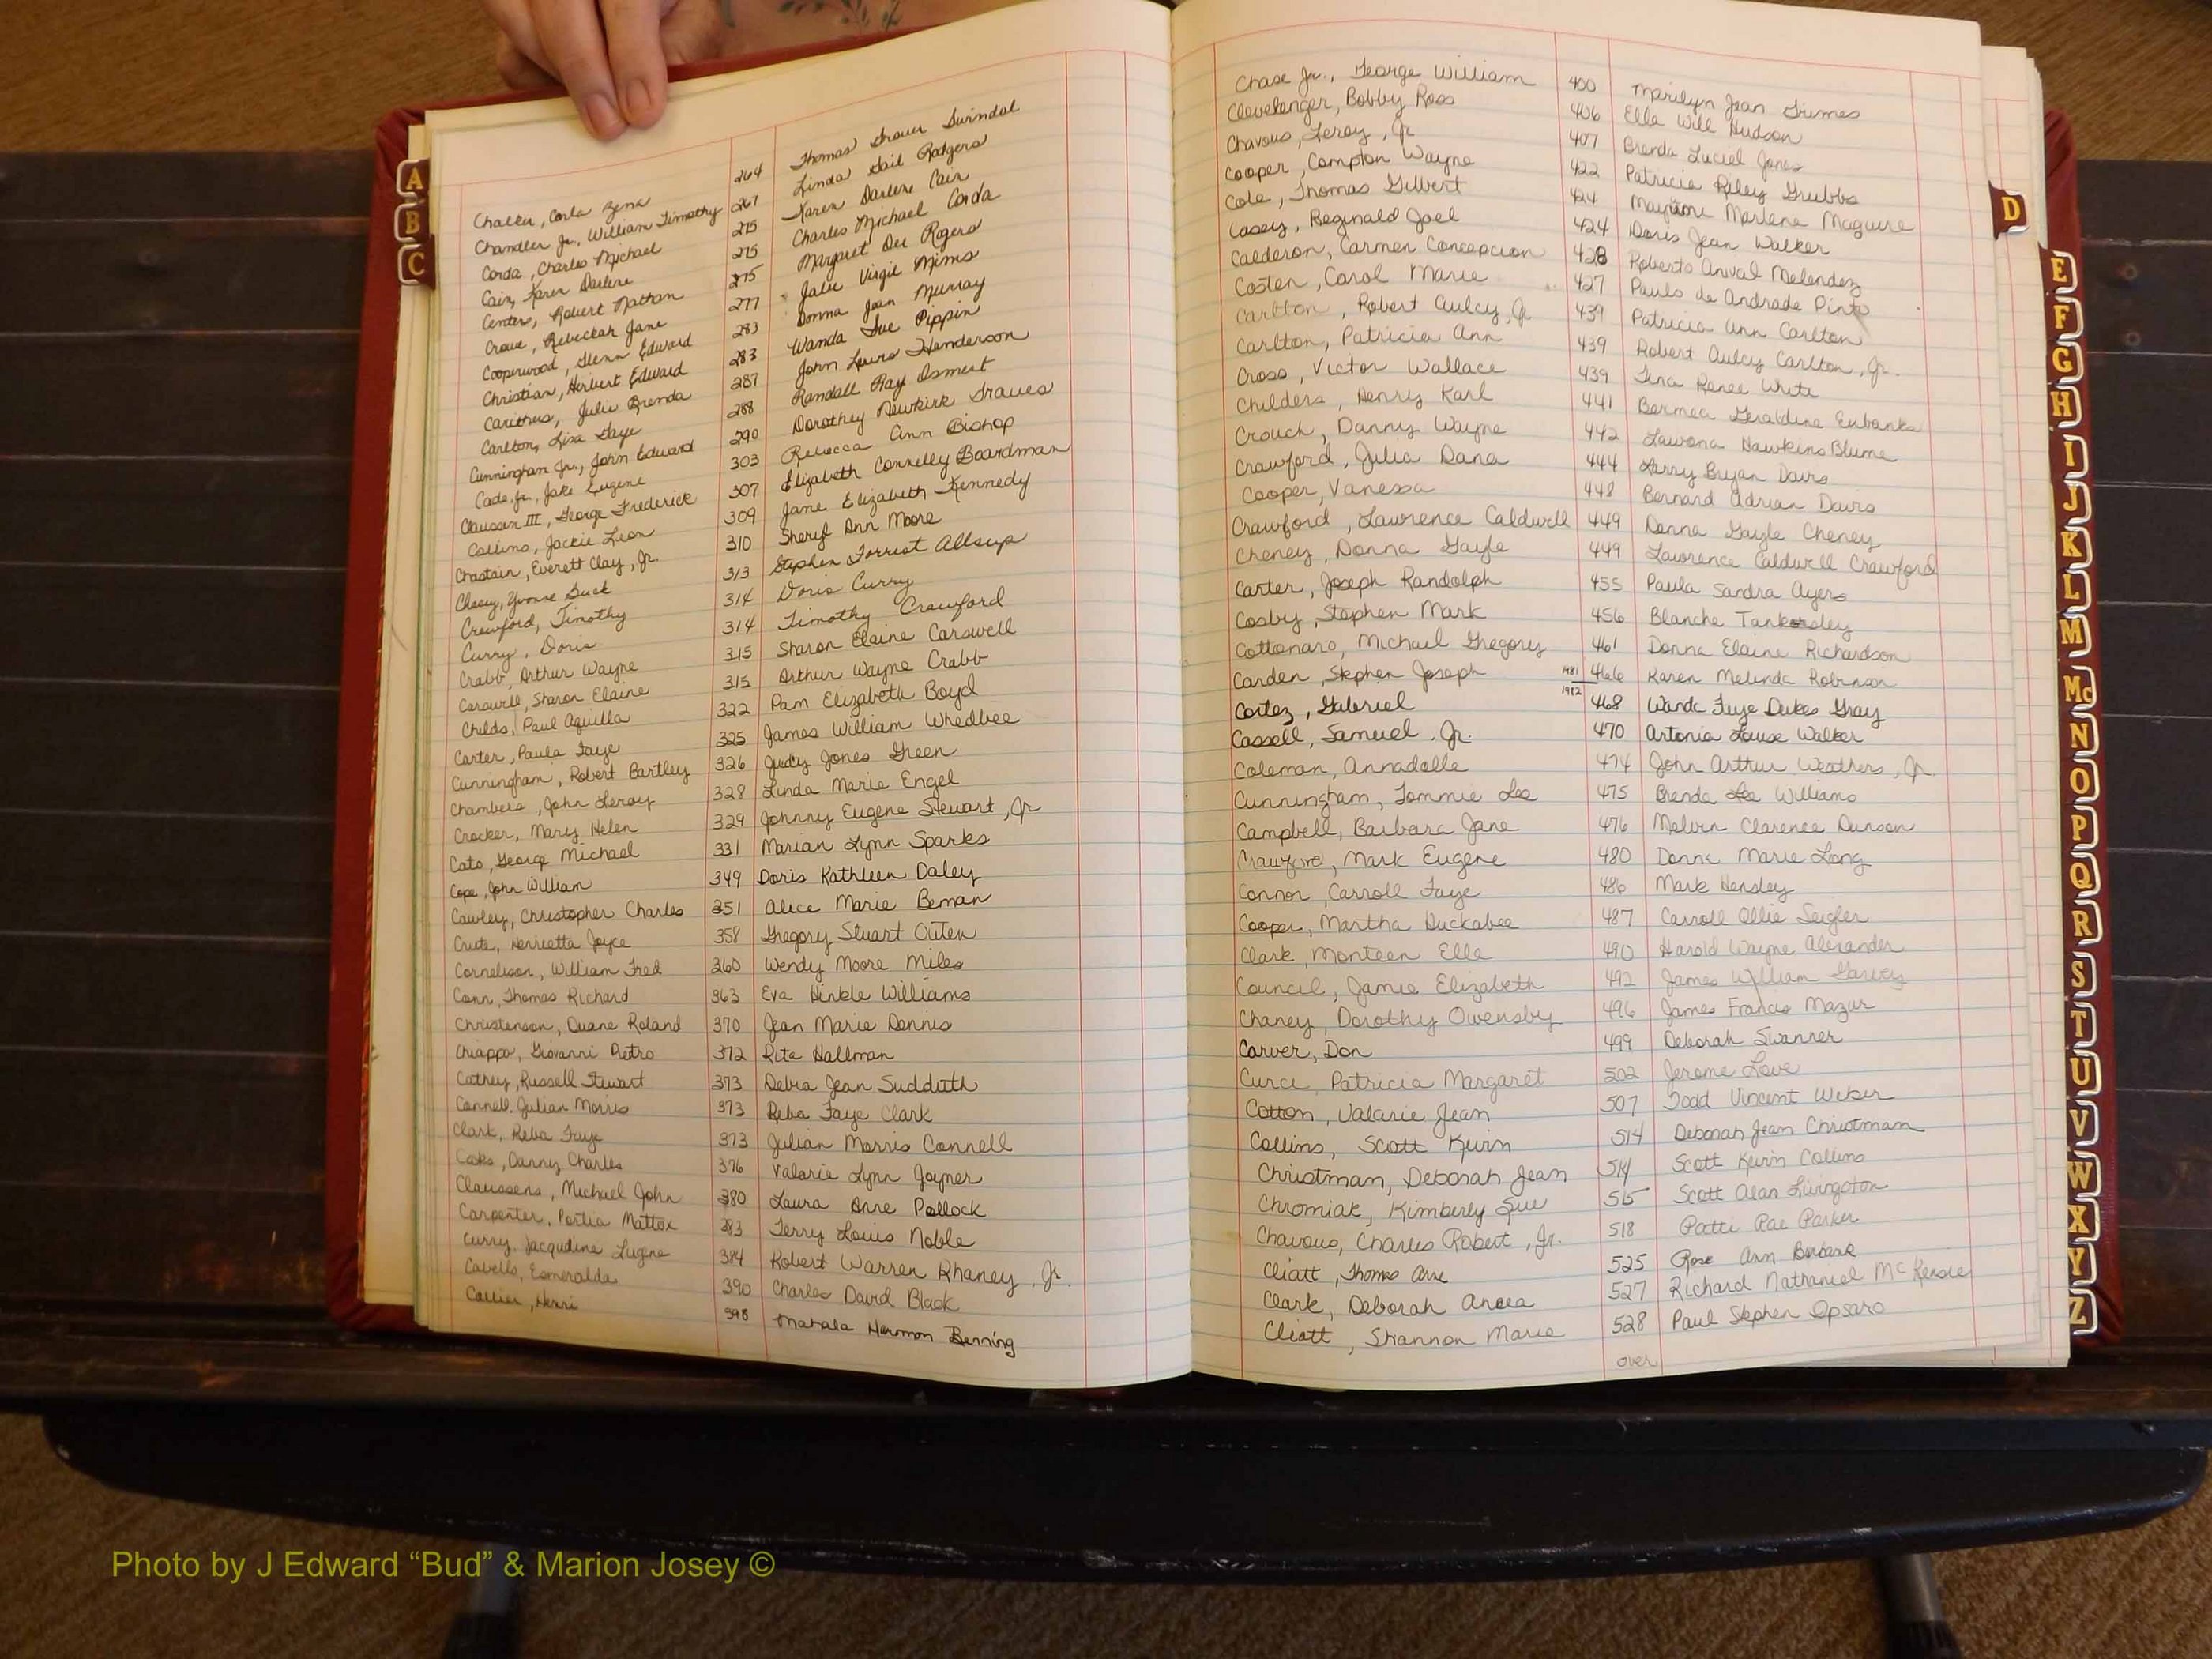 A
B
C
Chalker, Carla Zena 264 Thomas Grauer Swindal
Chandler Jr., William Timothy 267 Linda Gail Rodgers
Corda, Charles Michael 275 Karen Darlene Cain
Cain, Karen Darlene 275 Charles Michael Corda
Centers, Robert Nathan 275 Margaret Dee Rogers
Crowe, Rebeckah Jane 277 Virgil Mims
Cooperwood, Glenn Edward 283 Donna Jean Murray
Christian, Herbert Edward 283 Wanda Sue Pippin
Carithers, Julie Brenda 287 John Lewis Henderson
Carlton, Lisa Gaye 288 Randall Ray Osment
Cunningham Jr., John Edward 290 Dorothey Newkirk Graves
Cade, Jr., Jake Eugene 303 Rebecca Ann Bishop
Claussen III, George Frederick 307 Elizabeth Connelly Boardman
Collins, Jackie Leon 309 Jane Elizabeth Kennedy
Chastain, Everett Clay, Jr. 310 Sheryl Ann Moore
Yvonne Buck 313 Stephen Forrest Allsup
Crawford, Timothy 314 Doris Curry
Curry, Doris 314 Timothy Crawford
Crabb, Arthur Wayne 315 Sharon Elaine Carswell
Carswell, Sharon Elaine 315 Arthur Wayne Crabb
Childs, Paul Aquilla 322 Pam Elizabeth Boyd
Carter, Paula Faye 325 James William Whedbee
Cunningham, Robert Bartley 326 Judy Jones Green
Chambers, John Leroy 328 Linda Marie Engel
Crocker, Mary Helen 329 Johnny Eugene Stewart, Jr
Cato, George Michael 331 Marian Lynn Sparks
Cope, John William 349 Doris Kathleen Daley
Cawley, Christopher Charles 351 Alice Marie Beman
Crute, Henrietta Joyce 358 Gregory Stuart Outen
Cornelison, William Fred 360 Wendy Moore Miles
Conn, Thomas Richard 363 Eva Hinkle Williams
Christenson, Duane Roland 370 Jean Marie Dennis
Chiappo, Giovanni Pietro 372 Rita Hallman
Cathey, Russell Stewart 373 Debra Jean Sudduth
Connell, Julian Morris 373 Reba Faye Clark
Clark, Reba Faye 373 Julian Morris Connell
Danny Charles 376 Valarie Lynn Joyner
Claussens, Michael John 380 Laura Anne Pollock
Carpenter, Portia Mattox 383 Terry Louis Noble
Curry, Jacqueline Eugene 384 Robert Warren Rhaney, Jr.
Cabello, Esmeralda 390 Charles David Black
Collier, Henri 398 Hermon Benning
Chase Jr., George William 400 Marilyn Jean Grimes
Clevelenger, Bobby Ross 406 Ella Will Hudson
Chavous, Leroy, Jr 407 Brenda Luciel Jones
Cooper, Compton Wayne 422 Patricia Riley Grubbs
Cole, Thomas Gilbert 424 Marlene Maguire
Casey, Reginald Joel 424 Doris Jean Walker
Calderon, Carmen Concepcion 428 Roberto Anival Melendez
Costen, Carol Marie 427 Paulo de Andrade Pinto
Carlton, Robert Aulcy, Jr 439 Patricia Ann Carlton
Carlton, Patricia Ann 439 Robert Aulcy Carlton, Jr.
Cross, Victor Wallace 439 Tina Renee White
Childers, Henry Karl 441 Geraldine Eubanks
Crouch, Danny Wayne 442 Lawona Hawkins Blume
Crawford, Julia Dana 444 Larry Bryan Davis
Cooper, Vanessa 448 Bernard Adrian Davis
Crawford, Lawrence Caldwell 449 Donna Gayle Cheney
Cheney, Donna Gayle 449 Lawrence Caldwell Crawford
Carter, Joseph Randolph 455 Paula Sandra Ayers
Cosby, Stephen Mark 456 Blanche Tankersley
Cottonaro, Michael Gregory 461 Donna Elaine Richardson
Carden, Stephen Joseph 1981 466 Karen Melinda Robinson
Cortez, Gabriel 1982 468 Wanda Faye Dukes Gray
Cassell, Samuel, Jr. 470 Artonia Louise Walker
Coleman, Annadelle 474 John Arthur Weathers, Jr.
Cunningham, Tommie Lee 475 Brenda Lee Williams
Campbell, Barbara Jane 476 Melvin Clarence Dunson
Crawford, Mark Eugene 480 Donna Marie Long
Connor, Carroll Faye 486 Mark Hensley
Cooper, Martha Huckabee 487 Carroll Ollie Seigler
Clark, Monteen Ella 490 Harold Wayne Alexander
Council, Jamie Elizabeth 492 James William Garvey
Chaney, Dorothy Owensby 496 James Francis Mazur
Carver, Don 499 Deborah Swanner
Curci, Patricia Margaret 502 Jerome Love
Cotton, Valarie Jean 507 Todd Vincent Weber
Collins, Scott Kevin 514 Deborah Jean Christman
Christman, Deborah Jean 514 Scott Kevin Collins
Chromiak, Kimberly Sue 515 Scott Alan Livingston
Chavous, Charles Robert, Jr. 518 Patti Rae Parker
Cliatt, Thomas 525 Rose Ann
Clark, Deborah 527 Richard Nathaniel McKensie
Cliatt, Shannon Marie 528 Paul Stephen Opsaro
over
D
E
F
G
H
I
J
K
L
M
Mc
N
O
P
Q
R
S
T
U
V
W
X
Y
Z
Photo by J Edward “Bud” & Marion Josey ©